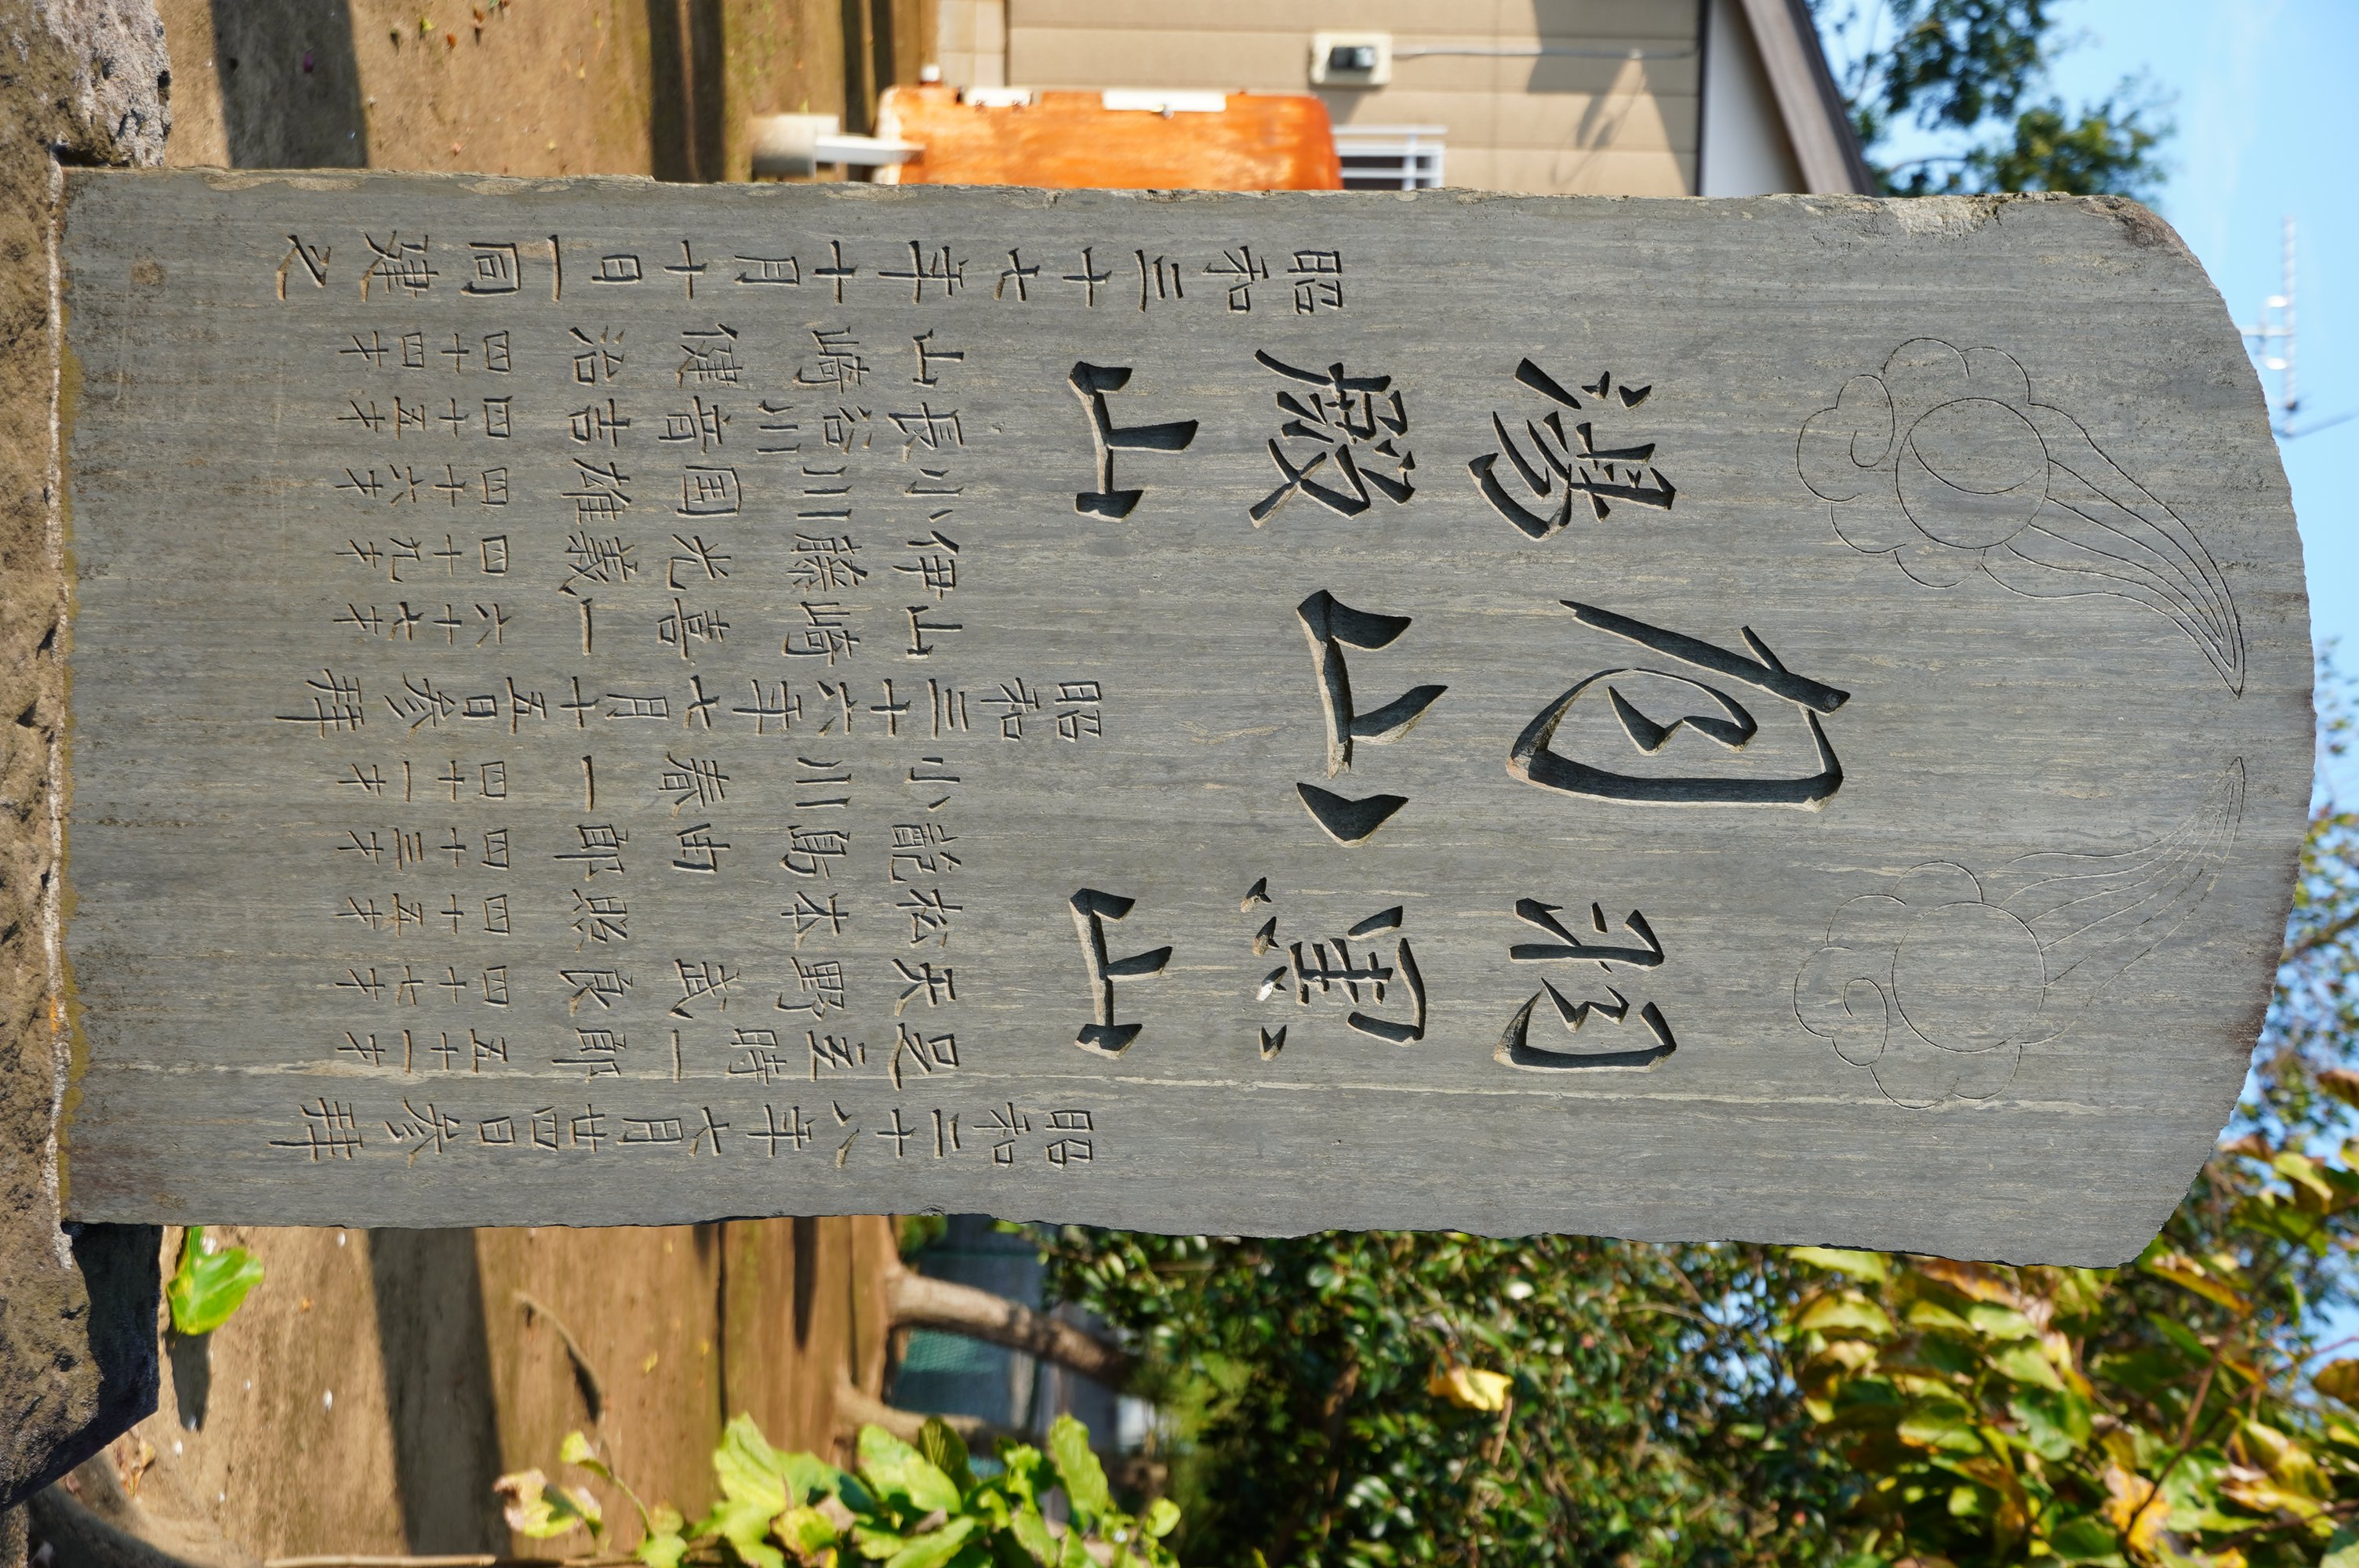 月山
羽黒山
湯殿山
昭和二十八年六月廿四日参拝
足立時一郎 五十一才
天野武良 四十七才
松本照 四十五才
島由郎 四十三才
小川春一 四十一才
昭和三十六年七月十五日参拝
山崎喜一 六十七才
伊藤光義 四十九才
小川国雄 四十六才
長谷川音吉 四十五才
山崎健治 四十四才
昭和三十七年十月十日一同建之